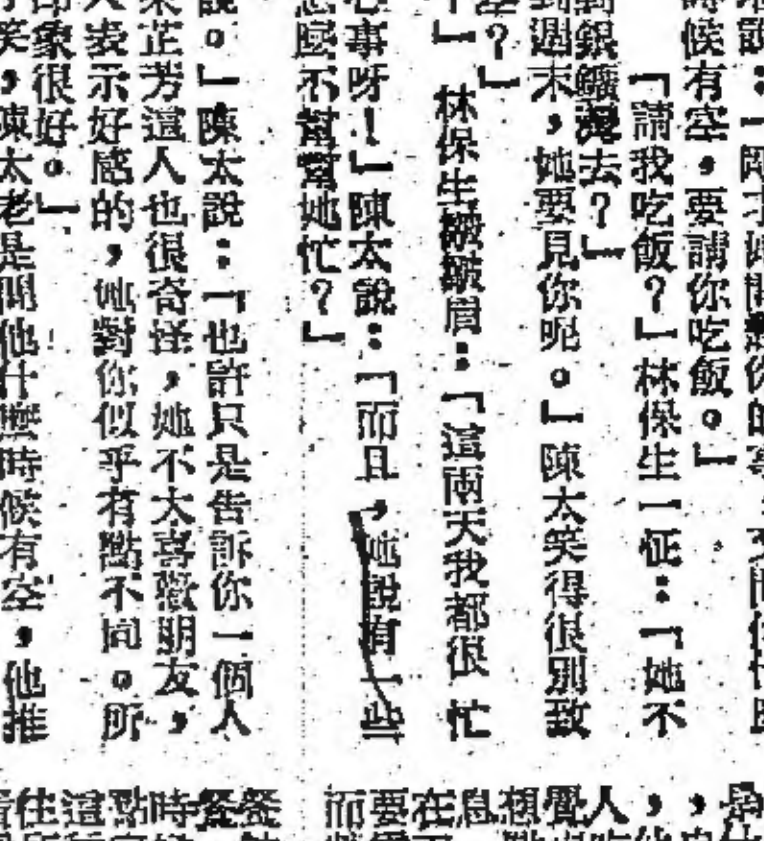 說:「剛才
時候有空,要請你吃飯。」
「請我吃飯?」林保生一怔:「她不
銀鑛灣去?」
到週末,她要見你呢。」陳太笑得很別致
?」
」林保生皺皺眉:「這兩天我都很忙
心事呀!」陳太說:「而且,她說有一些
怎麼不幫幫她忙?」
說。」陳太說:「也許只是告訴你一個人
芷芳這人也很奇怪,她不大喜歡朋友,
人表示好感的,她對你似乎有點不同。所
印象很好。」
笑,陳太老是問他什麼時候有空,他推
人,
覺
想
息
在
要
而
餐
餐
時
點
這
住